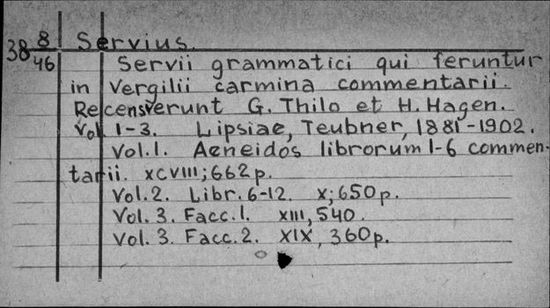 38 8/46 Servius.
Servii grammatici qui feruntur
in Vergilii carmina commentarii.
Recensverunt G. Thilo et H. Hagen.
Vol. 1-3. Lipsiae, Teubner, 1881-1902.
Vol. 1. Aeneidos librorum 1-6 commen-
tarii. XCVIII; 662 p.
Vol. 2. Libr. 6-12. X; 650 p.
Vol. 3. Facc. 1. XIII, 540.
Vol. 3. Facc. 2. XIX, 360 p.